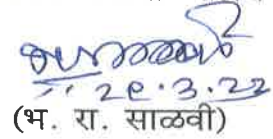 २९.३.२२
(भ. रा. साळवी)